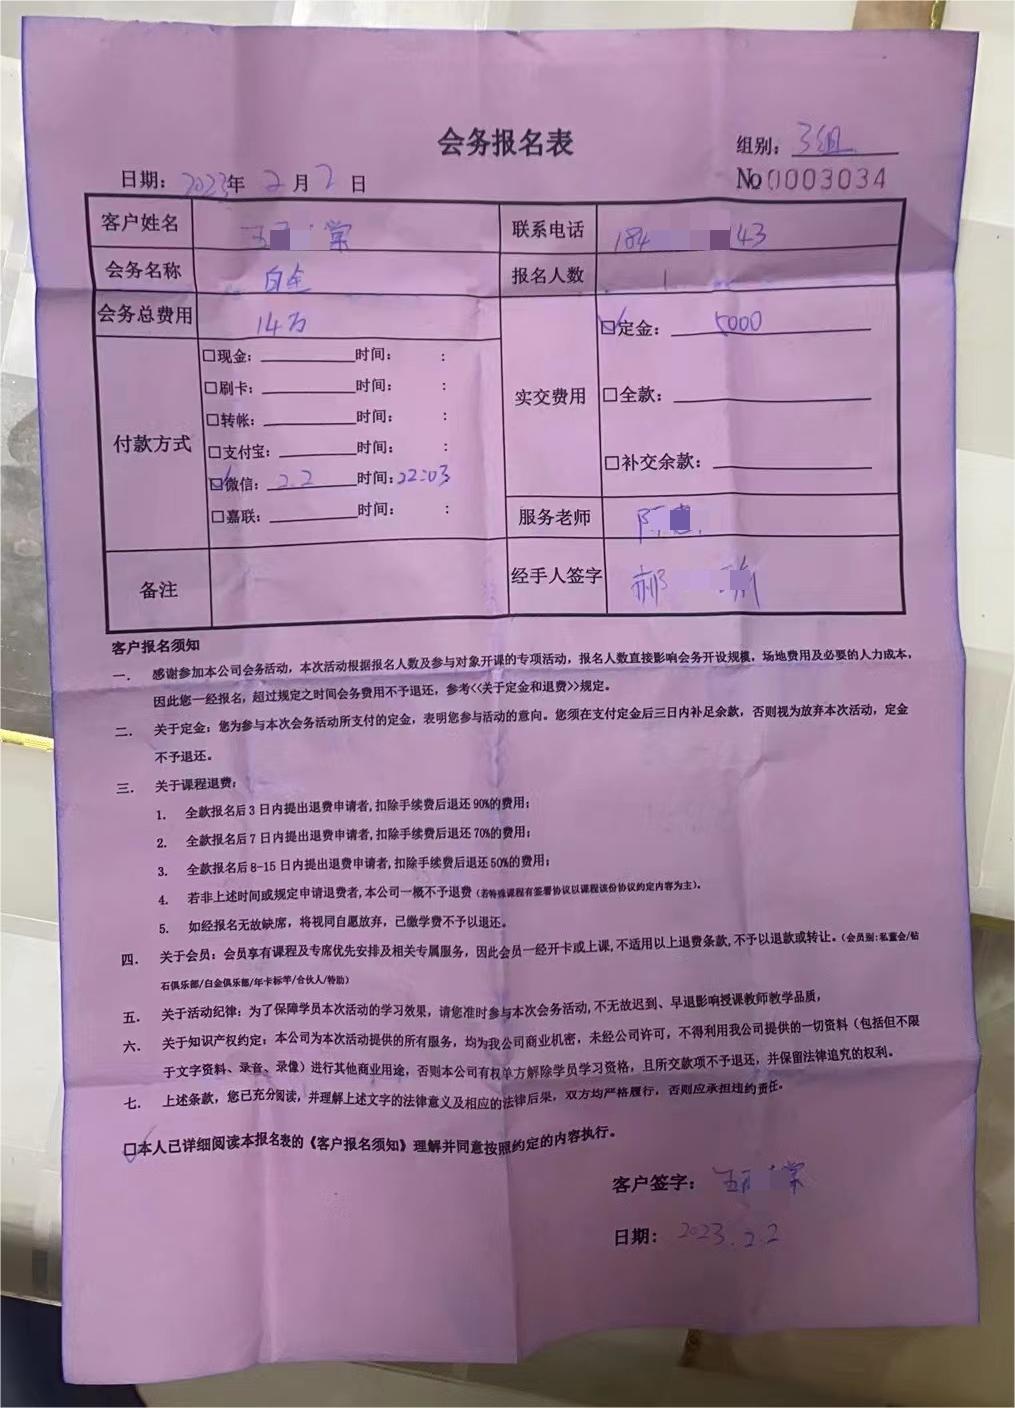 会务报名表
组别：3组
日期：2023年2月2日
No 0003034
客户姓名 王 棠 联系电话 184 143
会务名称 白金 报名人数 1
会务总费用 14万
付款方式
□现金： 时间： ：
□刷卡： 时间： ：
□转帐： 时间： ：
□支付宝： 时间： ：
☑微信：2.2 时间：22:03
□嘉联： 时间： ：
实交费用
☑定金：5000
□全款：
□补交余款：
服务老师 陈
备注
经手人签字 郝
客户报名须知
一． 感谢参加本公司会务活动，本次活动根据报名人数及参与对象开课的专项活动，报名人数直接影响会务开设规模，场地费用及必要的人力成本，
因此您一经报名，超过规定之时间会务费用不予退还，参考<<关于定金和退费>>规定。
二． 关于定金：您为参与本次会务活动所支付的定金，表明您参与活动的意向。您须在支付定金后三日内补足余款，否则视为放弃本次活动，定金
不予退还。
三． 关于课程退费：
1. 全款报名后3日内提出退费申请者,扣除手续费后退还90%的费用；
2. 全款报名后7日内提出退费申请者,扣除手续费后退还70%的费用；
3. 全款报名后8-15日内提出退费申请者,扣除手续费后退还50%的费用；
4. 若非上述时间或规定申请退费者,本公司一概不予退费（若特殊课程有签署协议以课程该份协议约定内容为主）。
5. 如经报名无故缺席，将视同自愿放弃，已缴学费不予以退还。
四． 关于会员：会员享有课程及专席优先安排及相关专属服务，因此会员一经开卡或上课,不适用以上退费条款,不予以退款或转让。（会员别:私董会/钻
石俱乐部/白金俱乐部/年卡标竿/合伙人/特助）
五． 关于活动纪律：为了保障学员本次活动的学习效果，请您准时参与本次会务活动,不无故迟到、早退影响授课教师教学品质，
六． 关于知识产权约定：本公司为本次活动提供的所有服务，均为我公司商业机密，未经公司许可，不得利用我公司提供的一切资料（包括但不限
于文字资料、录音、录像）进行其他商业用途，否则本公司有权单方解除学员学习资格，且所交款项不予退还，并保留法律追究的权利。
七． 上述条款，您已充分阅读，并理解上述文字的法律意义及相应的法律后果，双方均严格履行，否则应承担违约责任。
☑本人已详细阅读本报名表的《客户报名须知》理解并同意按照约定的内容执行。
客户签字：王 棠
日期：2023.2.2